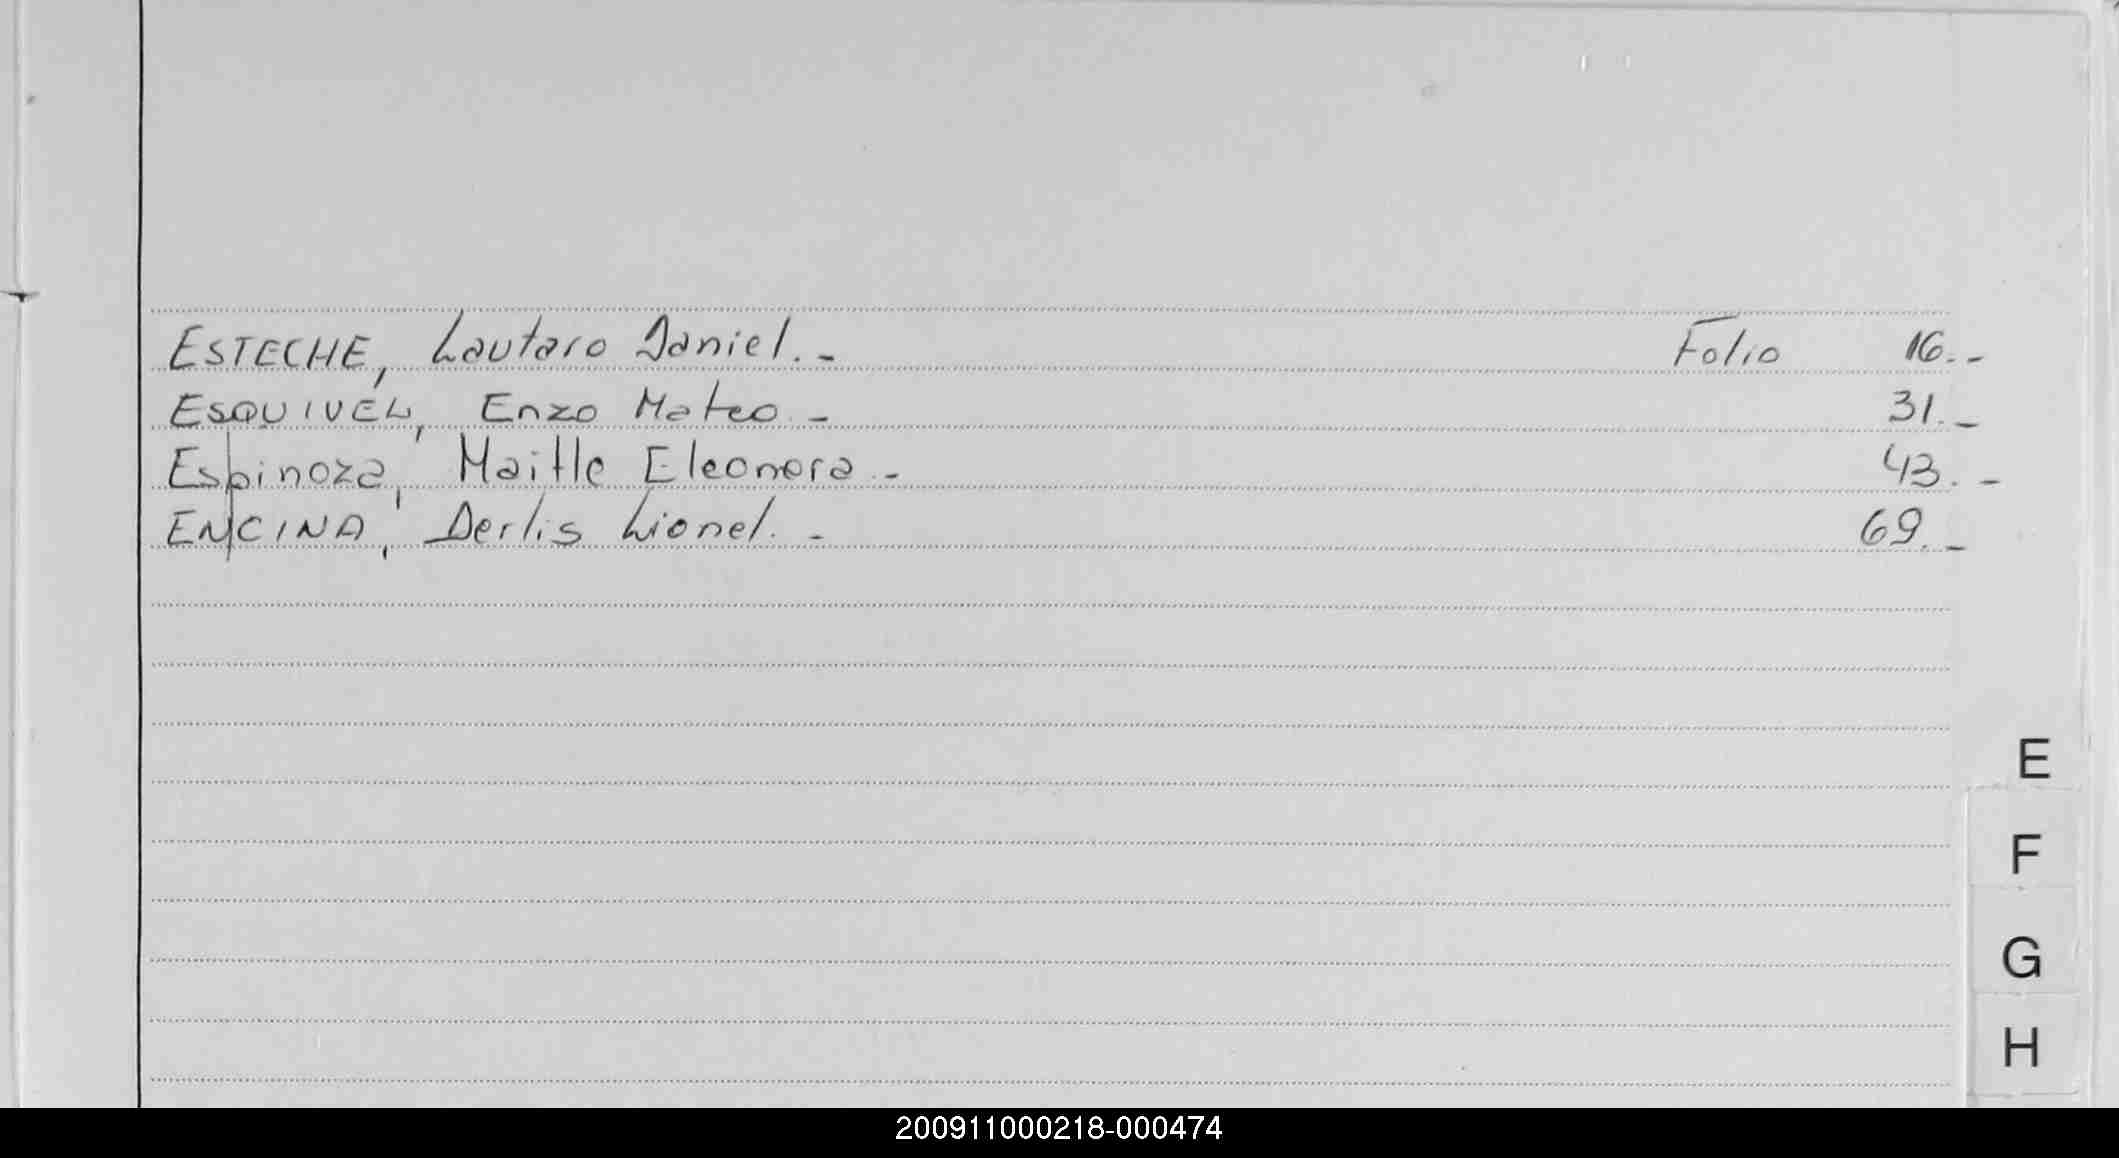 ESTECHE, Lautaro Daniel.- Folio 16.-
ESQUIVEL, Enzo Mateo.- 31.-
Espinoza, Maitle Eleonora.- 43.-
ENCINA, Derlis Lionel.- 69.-
E
F
G
H
200911000218-000474